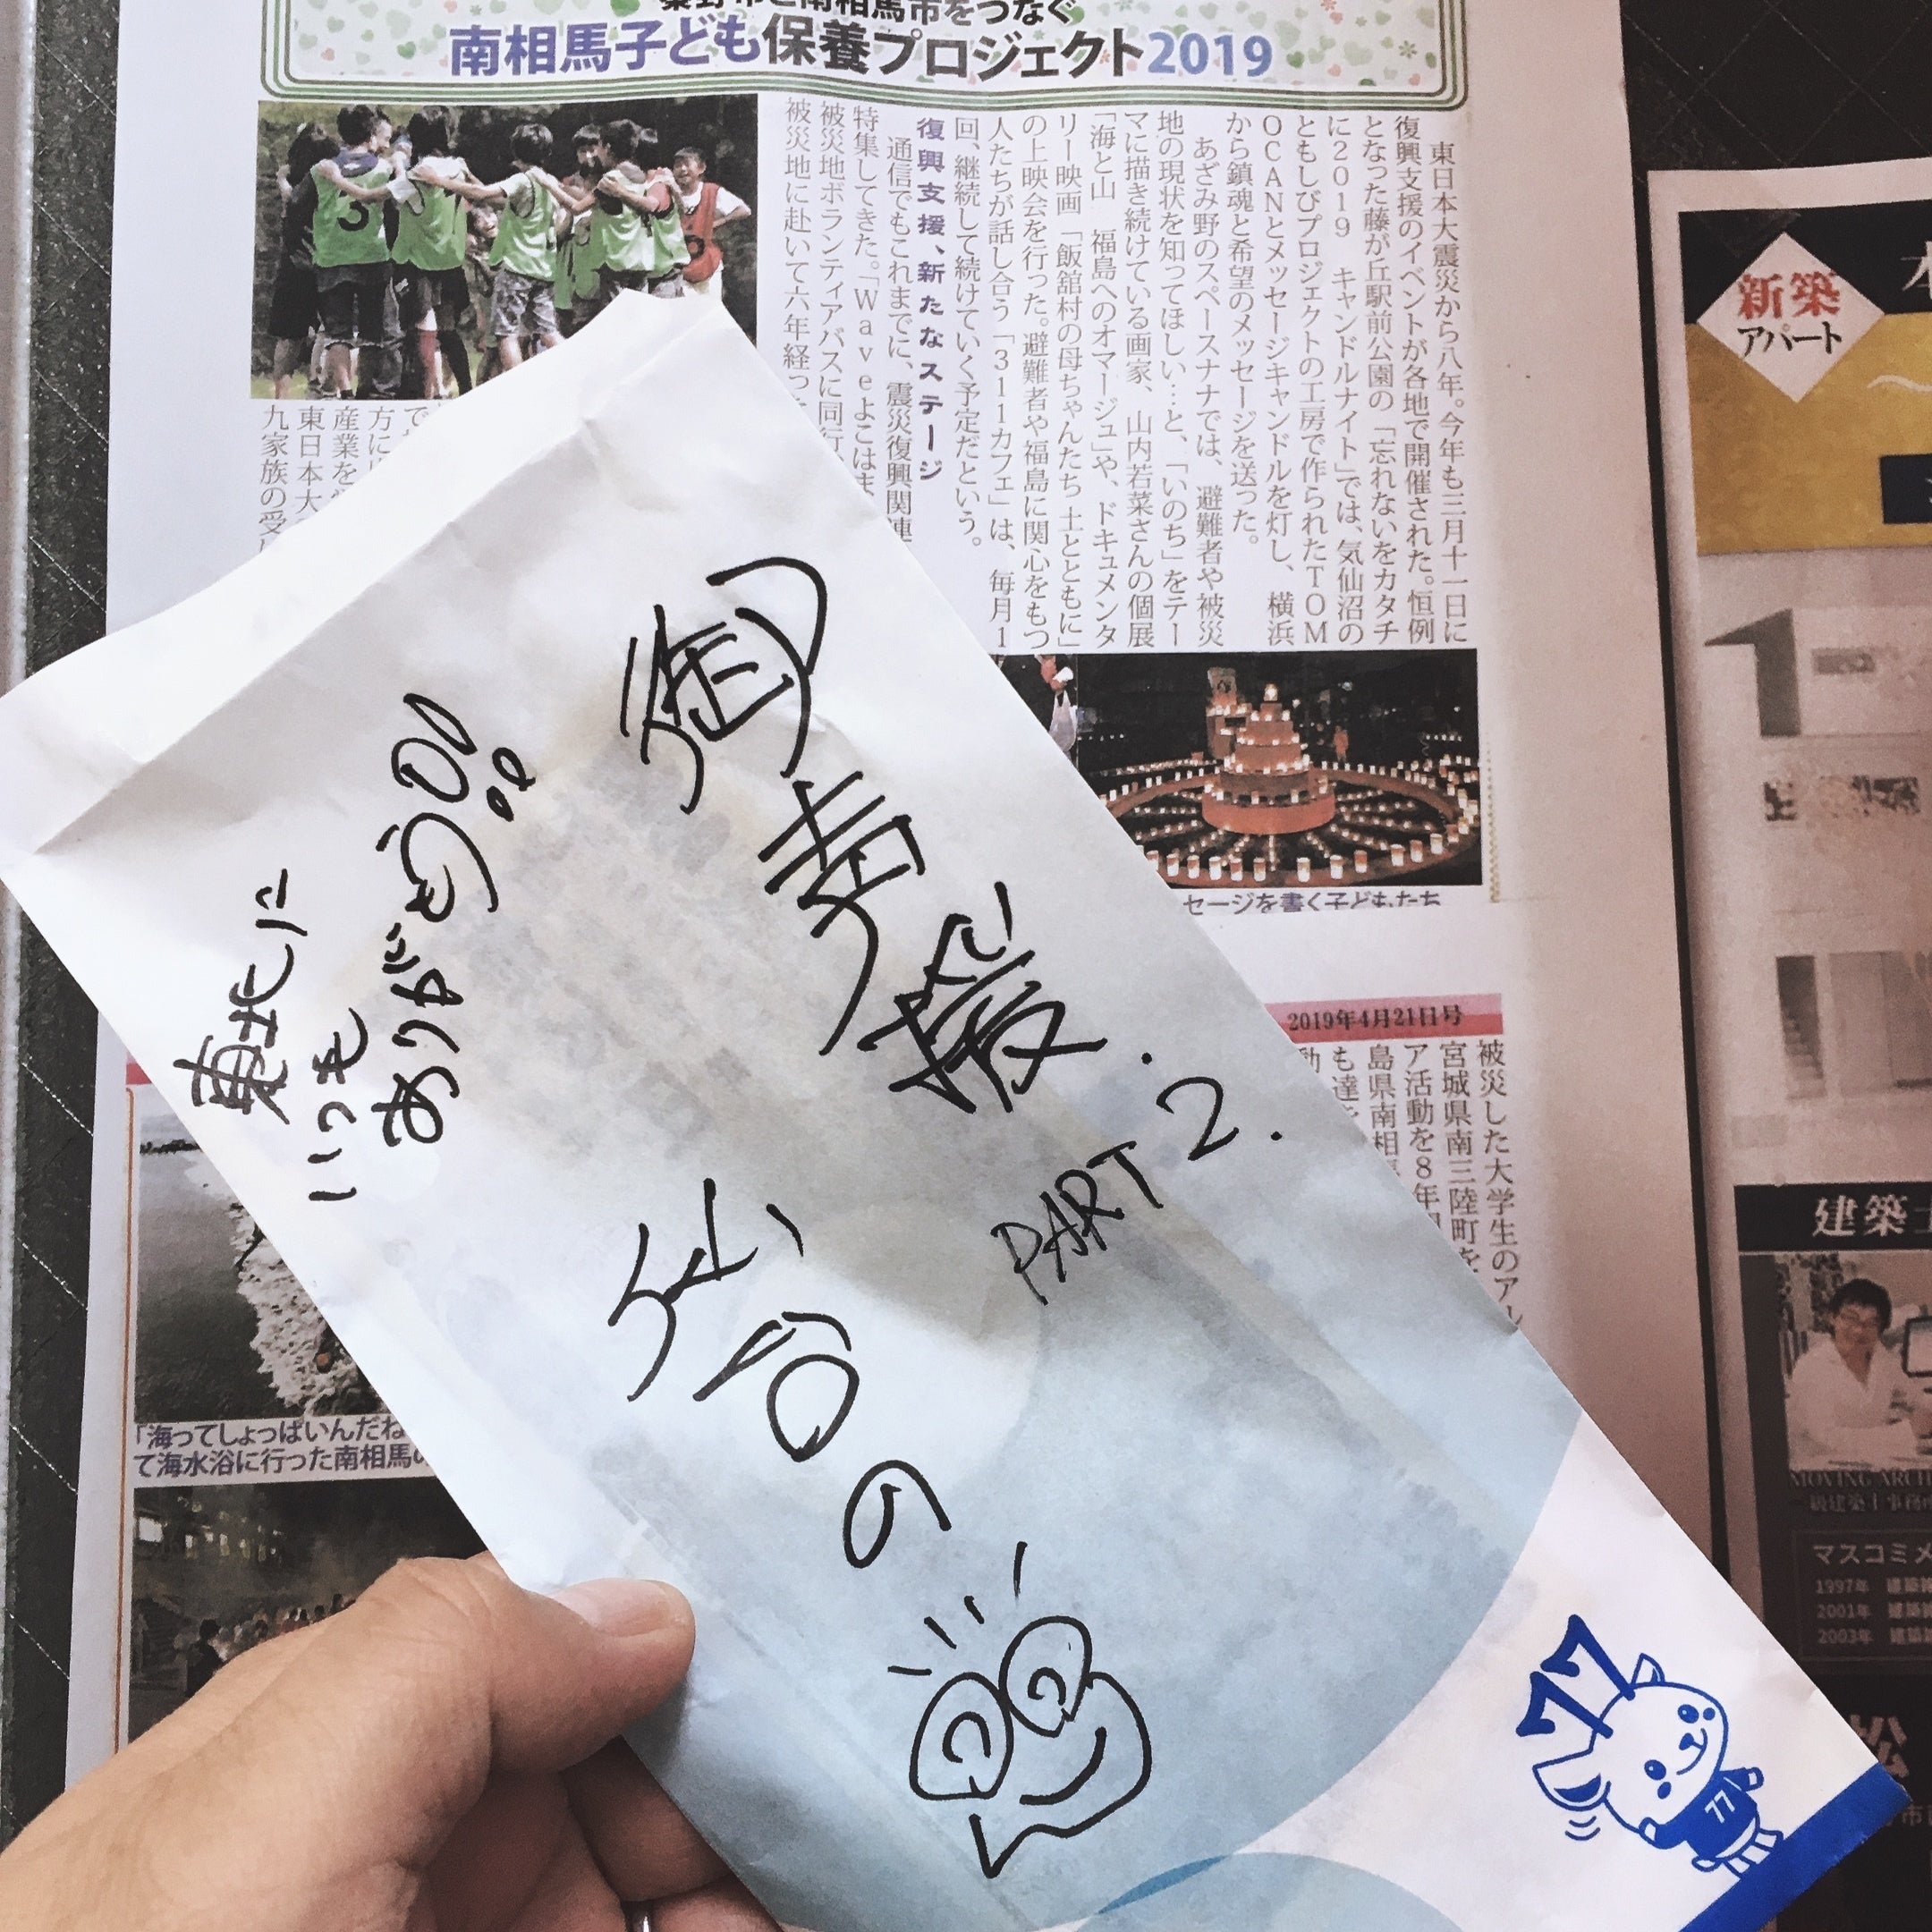 南相馬市をつなぐ
南相馬子ども保養プロジェクト2019
東日本大震災から八年。今年も三月十一日に
復興支援のイベントが各地で開催された。恒例
となった藤が丘駅前公園の「忘れないをカタチ
に2019 キャンドルナイト」では、気仙沼の
ともしびプロジェクトの工房で作られたTOM
OCANとメッセージキャンドルを灯し、横浜
から鎮魂と希望のメッセージを送った。
あざみ野のスペースナナでは、避難者や被災
地の現状を知ってほしい…と、「いのち」をテー
マに描き続けている画家、山内若菜さんの個展
「海と山 福島へのオマージュ」や、ドキュメンタ
リー映画「飯舘村の母ちゃんたち 土とともに」
の上映会を行った。避難者や福島に関心をもつ
人たちが話し合う「311カフェ」は、毎月1
回、継続して続けていく予定だという。
復興支援、新たなステージ
通信でもこれまでに、震災復興関連
特集してきた。「Waveよこはま
被災地ボランティアバスに同行
被災地に赴いて六年経っ
で
方に
産業を
東日本大
九家族の受
セージを書く子どもたち
2019年4月21日号
被災した大学生のアル
宮城県南三陸町を
ア活動を8年
島県南相
も達
「海ってしょっぱいんだね
て海水浴に行った南相馬の
御支援.
PART 2.
仙台の
東北に
いつも
ありがとう
77
77
新築
アパート
建築士
MOVING ARCH
一級建築士事務所
マスコミメ
1997年 建築
2001年 建築
2003年 建築
松
市